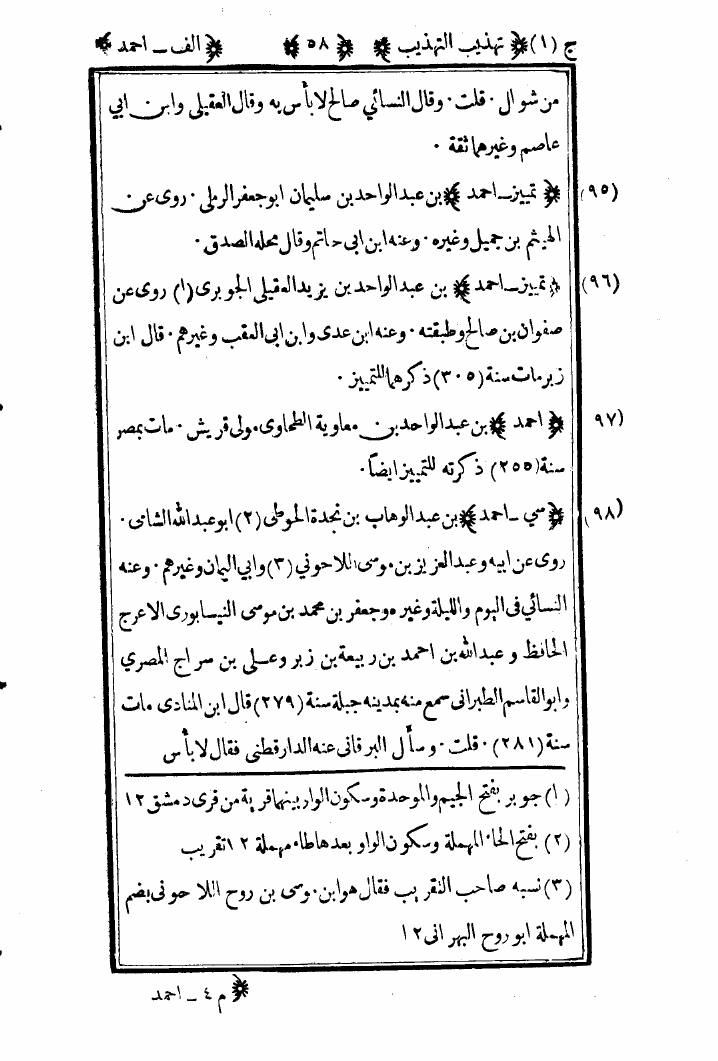 ج (١) ﴿ تهذيب التهذيب ﴾ ﴿ ٥٨ ﴾ ﴿ الف ـ احمد ﴾
من شوال · قلت · وقال النسائي صالح لا بأس به وقال العقيلى وابن ابي
عاصم وغيرهما ثقة ·
(٩٥) ﴿ تمييز ـ احمد ﴾ بن عبد الواحد بن سليمان ابو جعفر الرملى · روى عن
الهيثم بن جميل وغيره · وعنه ابن ابى حاتم وقال محله الصدق ·
(٩٦) ﴿ تمييز ـ احمد ﴾ بن عبد الواحد بن يزيد العقيلى الجوبرى (١) روى عن
صفوان بن صالح وطبقته · وعنه ابن عدى وابن ابى العقب وغيرهم · قال ابن
زبر مات سنة (٣٠٥) ذكرهما للتمييز ·
(٩٧ ﴿ احمد ﴾ بن عبد الواحد بن معاوية الطحاوى مولى قريش · مات بمصر
سنة (٢٥٥) ذكرته للتمييز ايضاً ·
(٩٨) ﴿ سي ـ احمد ﴾ بن عبد الوهاب بن نجدة الحوطى (٢) ابو عبد الله الشامى ·
روى عن ابيه وعبد العزيز بن موسى اللاحوني (٣) وابي اليمان وغيرهم · وعنه
النسائي فى اليوم والليلة وغيره وجعفر بن محمد بن موسى النيسابورى الاعرج
الحافظ و عبد الله بن احمد بن ربيعة بن زبر وعلى بن سراج المصري
وابو القاسم الطبرانى سمع منه بمدينه جبلة سنة (٢٧٩) قال ابن المنادى مات
سنة (٢٨١) · قلت · وسأل البرقانى عنه الدارقطنى فقال لا بأس
(١) جوبر بفتح الجيم والموحدة وسكون الواو بينهما قرية من قرى دمشق ١٢
(٢) بفتح الحاء المهملة وسكون الواو بعدها طاء مهملة ١٢ تقريب
(٣) نسبه صاحب التقريب فقال هو ابن موسى بن روح اللاحونى بضم
المهملة ابو روح البهرانى ١٢
﴿ م ٤ ـ احمد